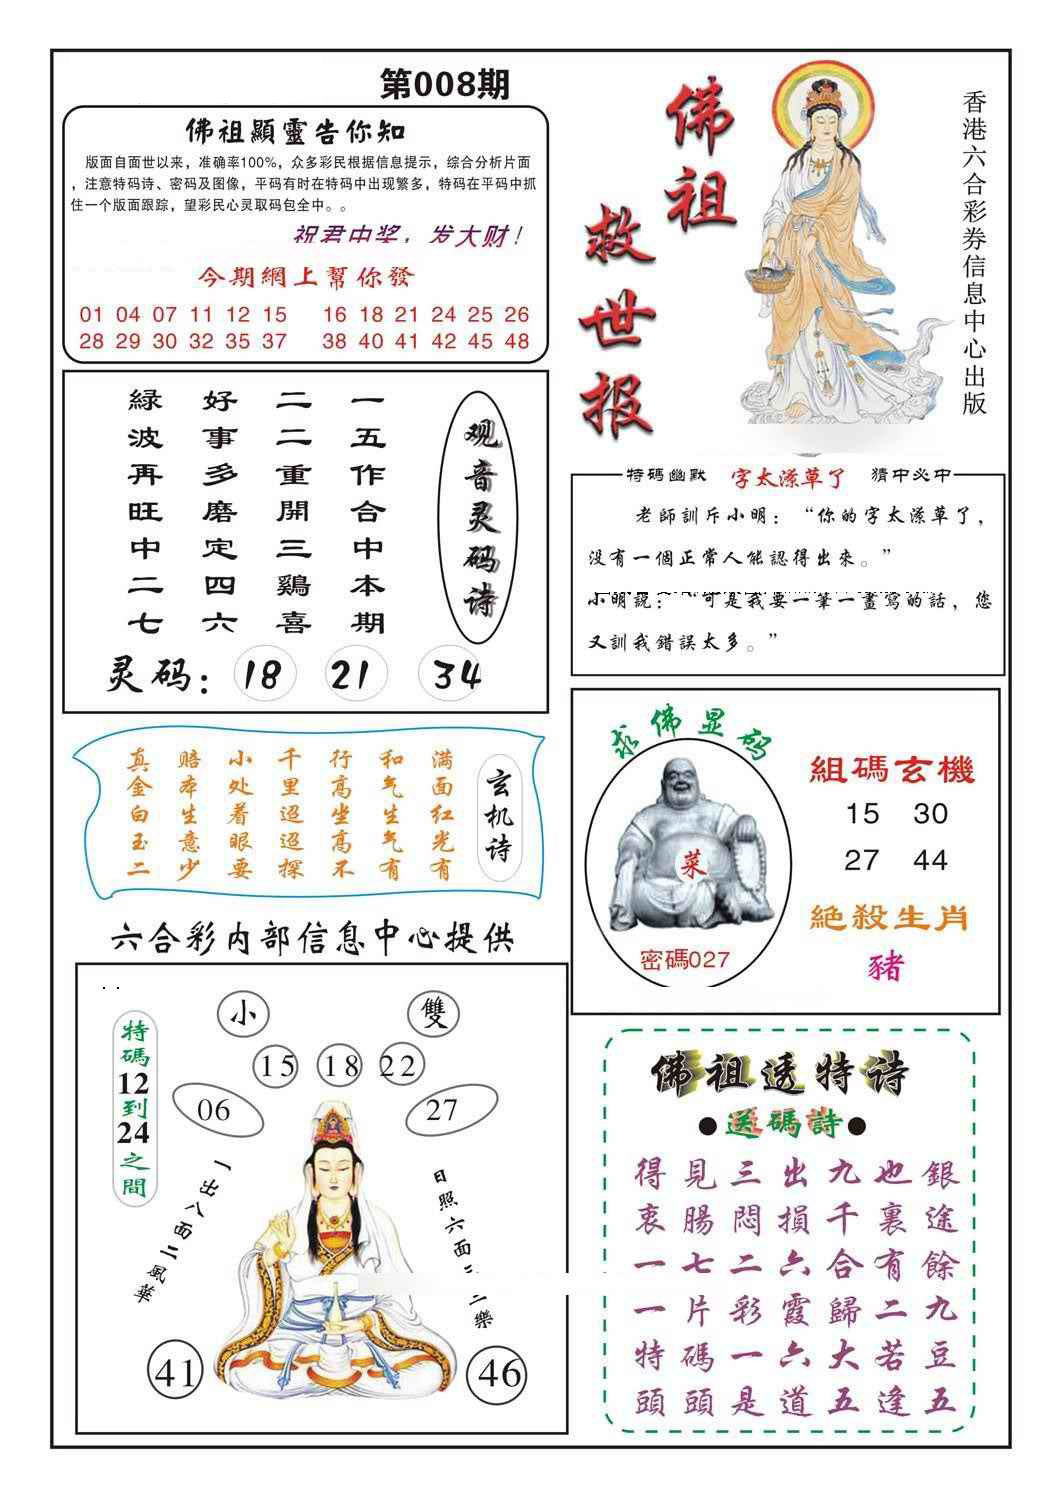 第008期
佛祖顯靈告你知
版面自面世以来，准确率100%，众多彩民根据信息提示，综合分析片面
，注意特码诗、密码及图像，平码有时在特码中出现繁多，特码在平码中抓
住一个版面跟踪，望彩民心灵取码包全中。。
祝君中奖，发大财！
今期網上幫你發
01 04 07 11 12 15 16 18 21 24 25 26
28 29 30 32 35 37 38 40 41 42 45 48
佛祖
救世报
香港六合彩券信息中心出版
观音灵码诗
一五作合中本期
二二重開三鷄喜
好事多磨定四六
緑波再旺中二七
灵码：18 21 34
特碼幽默 字太潦草了 猜中必中
老師訓斥小明：“你的字太潦草了，
没有一個正常人能認得出來。”
小明説：“可是我要一筆一畫寫的話，您
又訓我錯誤太多。”
玄机诗
满面红光有
和气生气有
行高坐高不
千里迢迢探
小处着眼要
赔本生意少
真金白玉二
求佛显码
菜
密碼027
組碼玄機
15 30
27 44
絕殺生肖
豬
六合彩内部信息中心提供
特碼12到24之間
小
雙
15 18 22
06 27
一出八面二風華
日照六面三二樂
41 46
佛祖透特诗
●送碼詩●
得見三出九也銀
衷腸悶損千裏途
一七二六合有餘
一片彩霞歸二九
特碼一六大若豆
頭頭是道五逢五